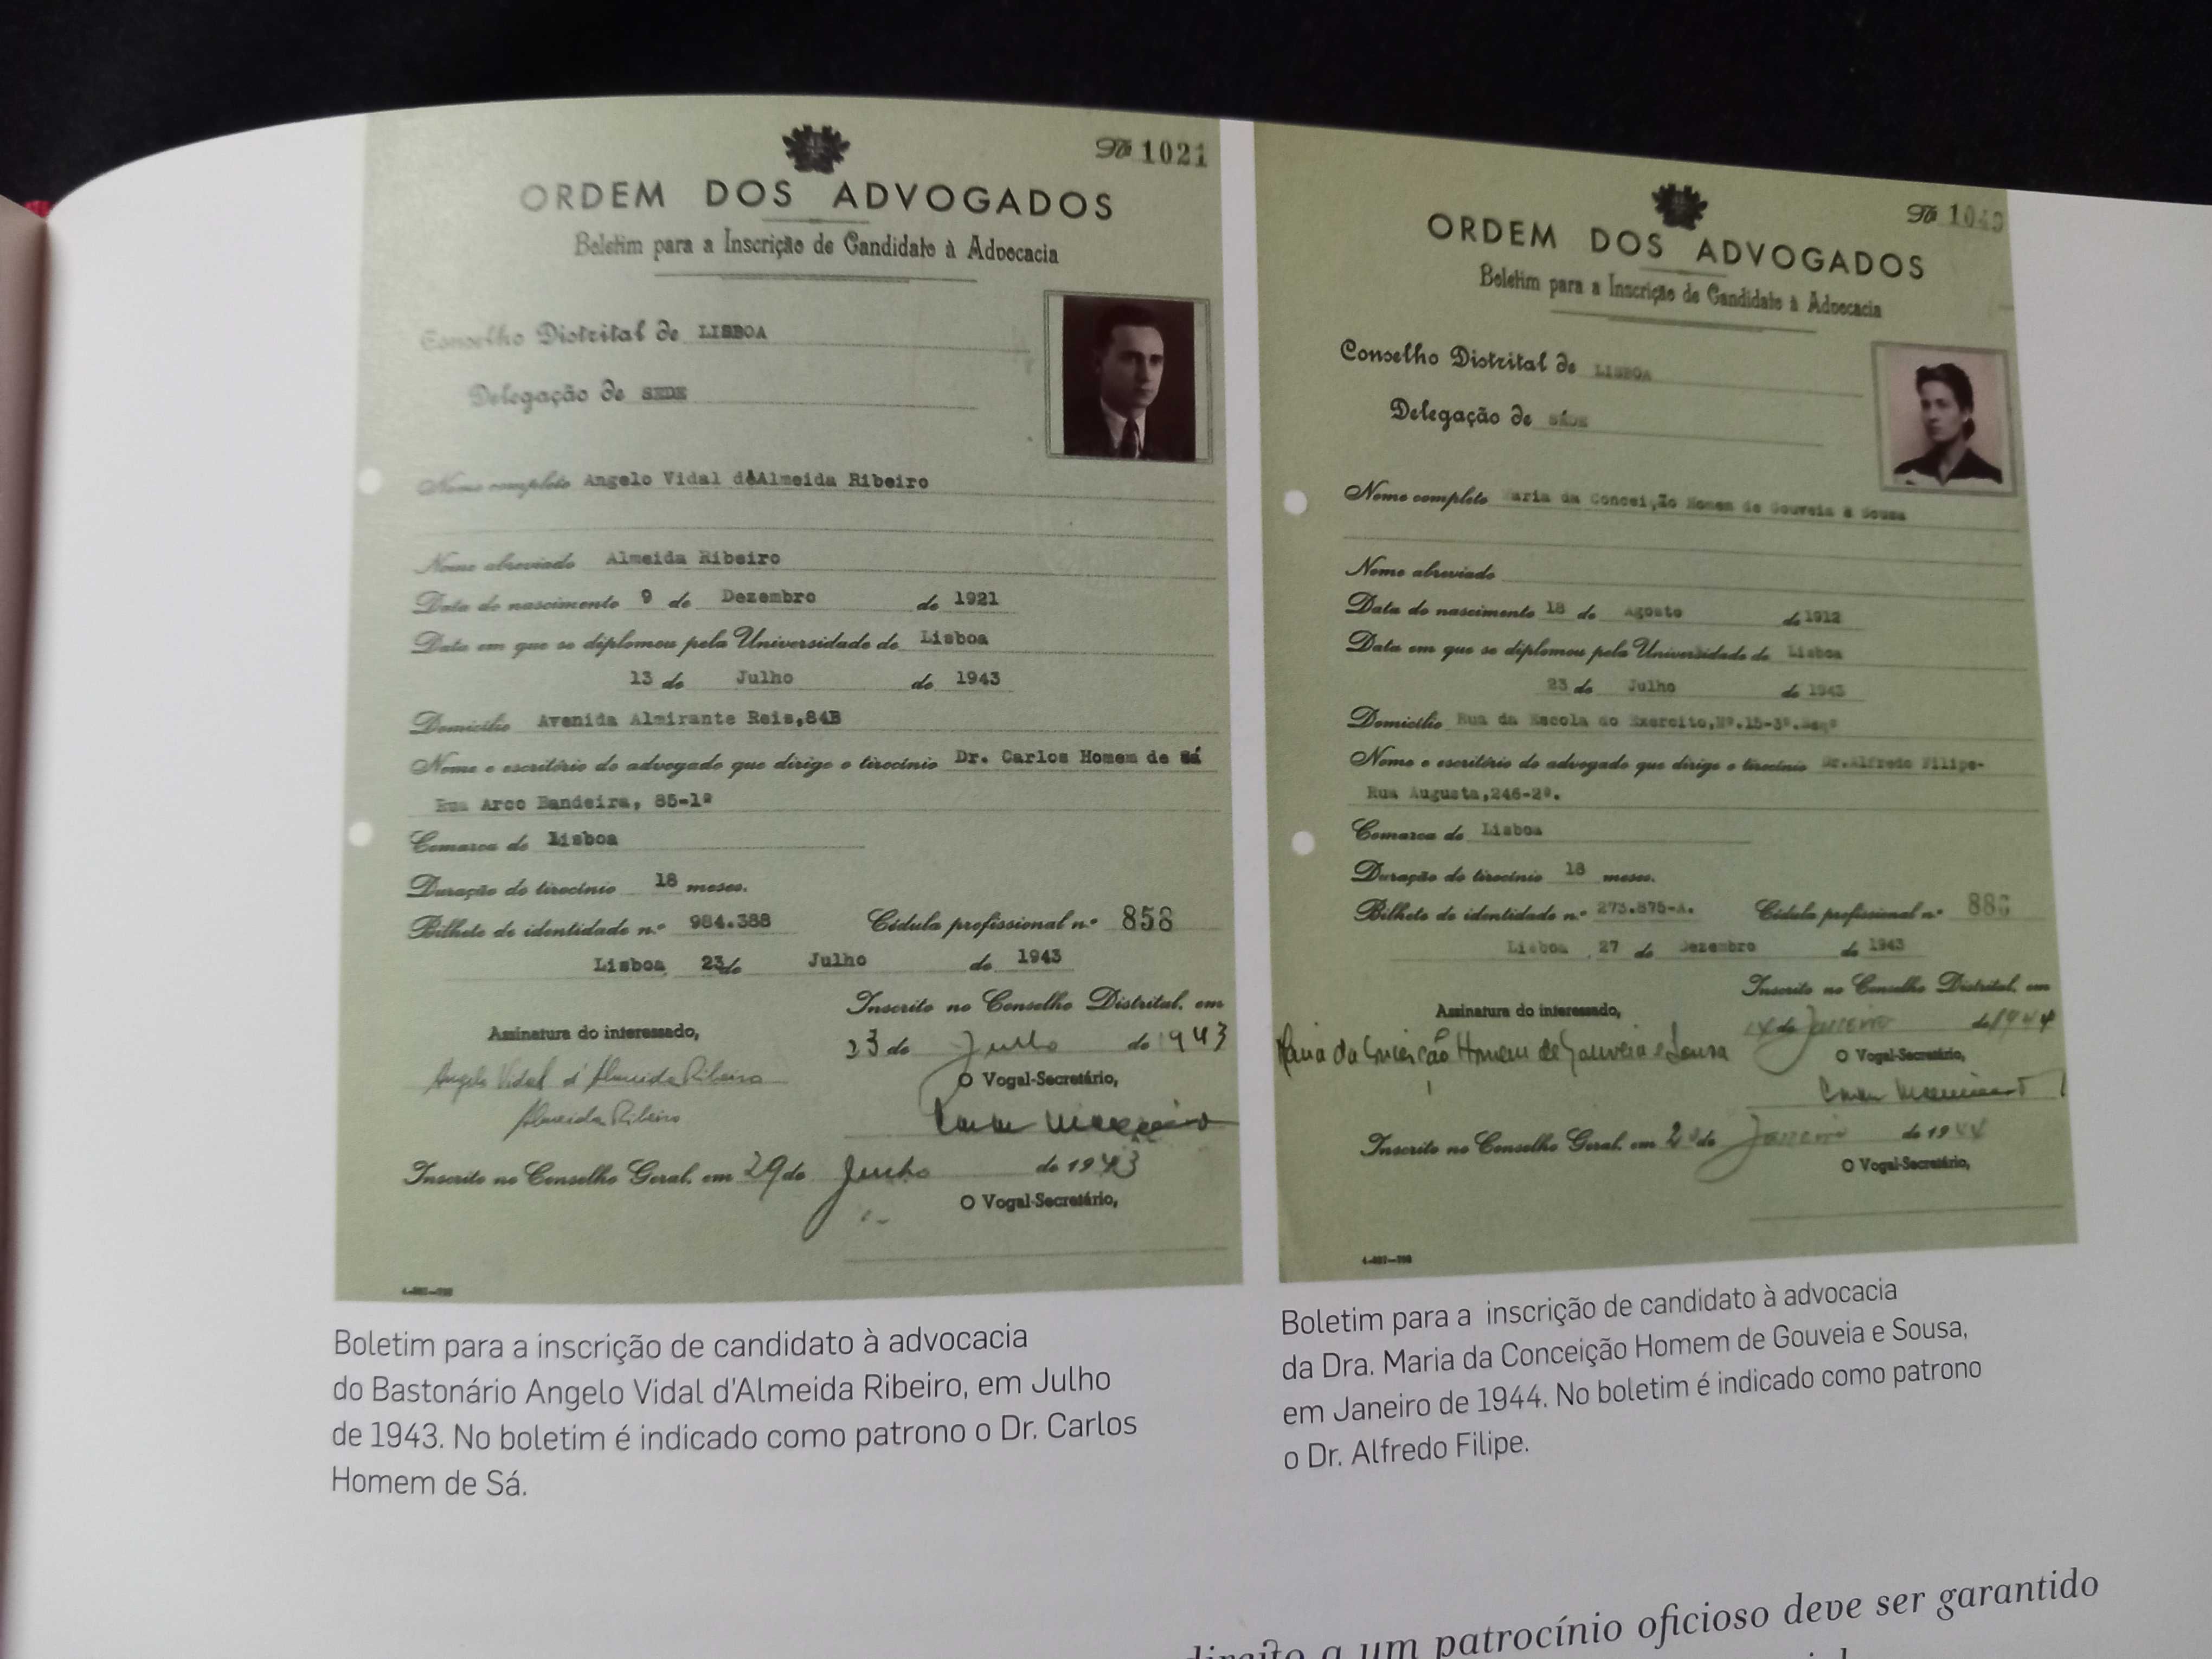 Nº 1021
ORDEM DOS ADVOGADOS
Boletim para a Inscrição de Candidato à Advocacia
Conselho Distrital de LISBOA
Delegação de SEDE
Nome completo Angelo Vidal d'Almeida Ribeiro
Nome abreviado Almeida Ribeiro
Data do nascimento 9 de Dezembro de 1921
Data em que se diplomou pela Universidade de Lisboa
13 de Julho de 1943
Domicílio Avenida Almirante Reis,84B
Nome e escritório do advogado que dirige o tirocínio Dr. Carlos Homem de Sá
Rua Arco Bandeira, 85-1º
Comarca de Lisboa
Duração do tirocínio 18 meses.
Bilhete de identidade n.º 984.388 Cédula profissional n.º 858
Lisboa 23 de Julho de 1943
Inscrito no Conselho Distrital, em
Assinatura do interessado,
23 de Julho de 1943
Angelo Vidal d'Almeida Ribeiro
O Vogal-Secretário,
Almeida Ribeiro
Inscrito no Conselho Geral, em 29 de Junho de 1943
O Vogal-Secretário,
Nº
ORDEM DOS ADVOGADOS
Boletim para a Inscrição de Candidato à Advocacia
Conselho Distrital de LISBOA
Delegação de SÉDE
Nome completo Maria da Conceição Homem de Gouveia e Sousa
Nome abreviado
Data do nascimento 18 de Agosto de 1912
Data em que se diplomou pela Universidade de Lisboa
23 de Julho de 1943
Domicílio Rua da Escola do Exercito,Nº.15-3º.
Nome e escritório do advogado que dirige o tirocínio Dr.Alfredo Filipe-
Rua Augusta,246-2º.
Comarca de Lisboa
Duração do tirocínio 18 meses.
Bilhete de identidade n.º 273.875-A. Cédula profissional n.º
Lisboa, 27 de Dezembro de 1943
Inscrito no Conselho Distrital, em
Assinatura do interessado,
de Janeiro de 1944
Maria da Conceição Homem de Gouveia e Sousa
O Vogal-Secretário,
Inscrito no Conselho Geral, em de Janeiro de 1944
O Vogal-Secretário,
Boletim para a inscrição de candidato à advocacia
do Bastonário Angelo Vidal d'Almeida Ribeiro, em Julho
de 1943. No boletim é indicado como patrono o Dr. Carlos
Homem de Sá.
Boletim para a inscrição de candidato à advocacia
da Dra. Maria da Conceição Homem de Gouveia e Sousa,
em Janeiro de 1944. No boletim é indicado como patrono
o Dr. Alfredo Filipe.
direito a um patrocínio oficioso deve ser garantido